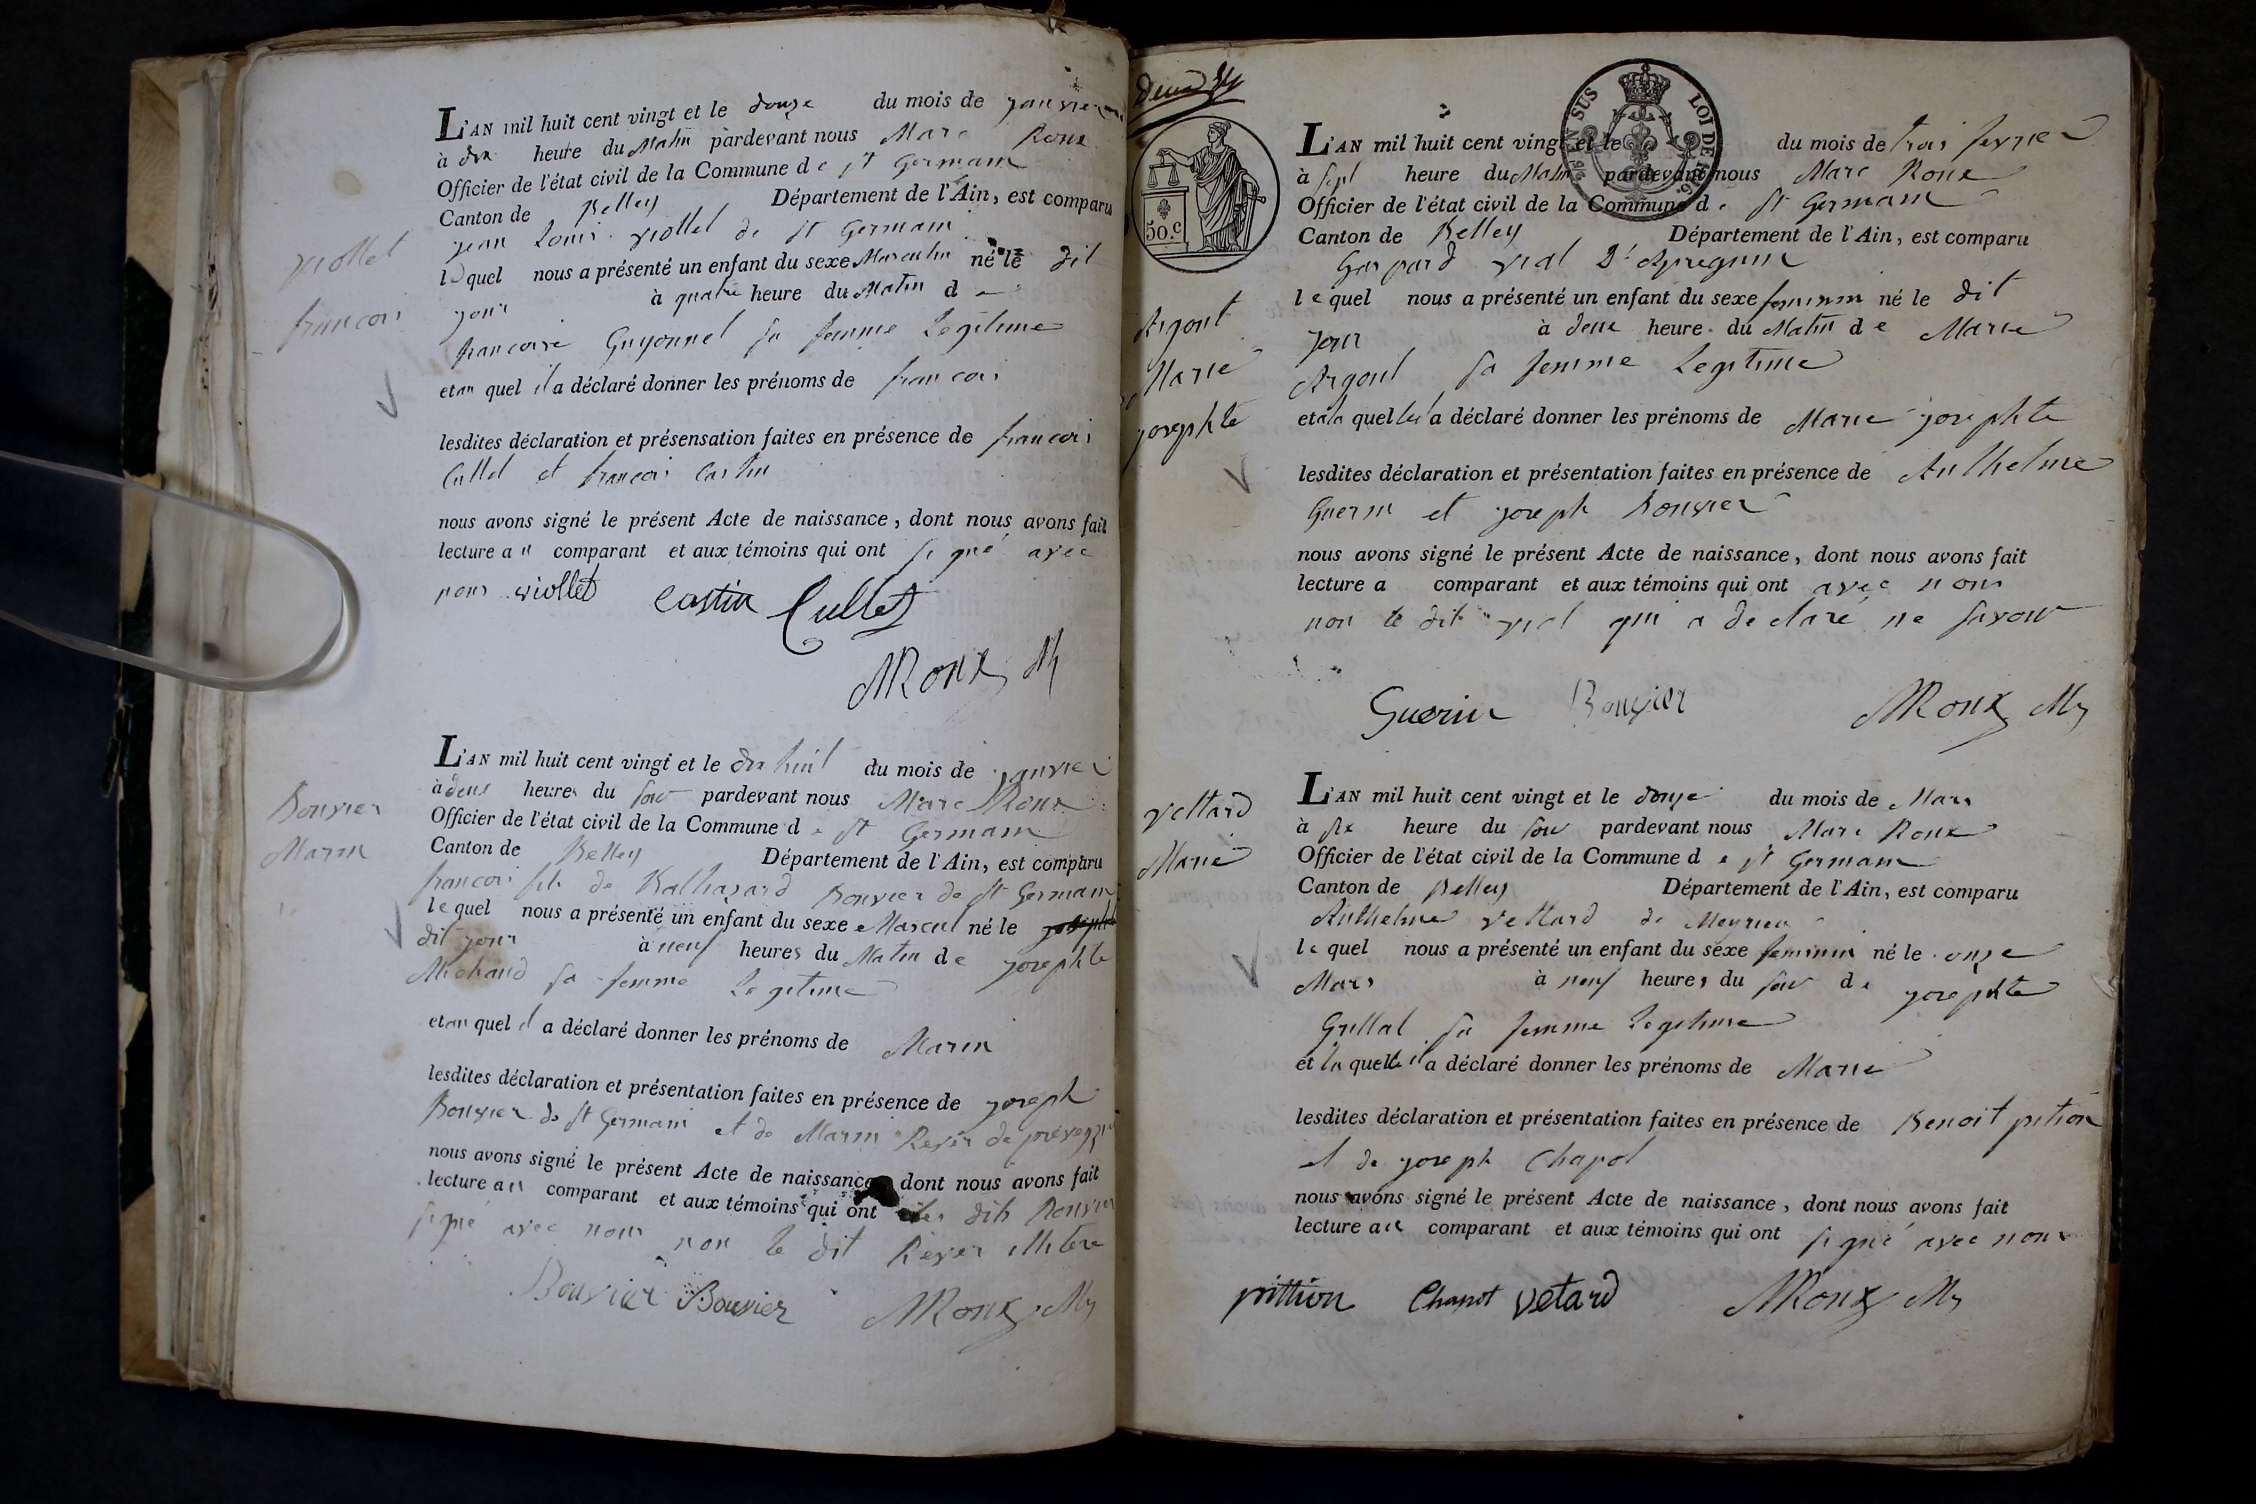 viollet
francois
L'AN mil huit cent vingt et le douze du mois de janvier
à dix heure du Matin pardevant nous Marc Roux
Officier de l'état civil de la Commune de St Germain
Canton de Belley Département de l'Ain, est comparu
jean Louis viollet de St Germain
lequel nous a présenté un enfant du sexe Masculin né le dit
jour à quatre heure du Matin de
francoise Guyonnet sa femme Legitime
et au quel il a déclaré donner les prénoms de francois
lesdites déclaration et présensation faites en présence de francois
Cullet et francois Castin
nous avons signé le présent Acte de naissance, dont nous avons fait
lecture au comparant et aux témoins qui ont signé avec
nous viollet Castin Cullet
MRoux M
Bouvier
Marin
L'AN mil huit cent vingt et le dix huit du mois de janvier
à deux heures du soir pardevant nous Marc Roux
Officier de l'état civil de la Commune de St Germain
Canton de Belley Département de l'Ain, est comparu
francois fils de Balthazard Bouvier de St Germain
lequel nous a présenté un enfant du sexe Mascul né le
dit jour à neuf heures du Matin de josephte
Michaud sa femme Legitime
et au quel il a déclaré donner les prénoms de Marin
lesdites déclaration et présentation faites en présence de joseph
Bouvier de St Germain et de Marin Reyer de
nous avons signé le présent Acte de naissance dont nous avons fait
lecture au comparant et aux témoins qui ont les dits Bouvier
signé avec nous non le dit Reyer
Bouvier Bouvier MRoux My
50.c
EN SUS LOI DE 1816.
Argout
Marie
josephte
L'AN mil huit cent vingt et le du mois de trois fevrier
à sept heure du Matin pardevant nous Marc Roux
Officier de l'état civil de la Commune de St Germain
Canton de Belley Département de l'Ain, est comparu
Gaspard vial
lequel nous a présenté un enfant du sexe feminin né le dit
jour à deux heure du Matin de Marie
Argout sa femme Legitime
et à la quelle il a déclaré donner les prénoms de Marie josephte
lesdites déclaration et présentation faites en présence de Anthelme
Guerin et joseph Bouvier
nous avons signé le présent Acte de naissance, dont nous avons fait
lecture a comparant et aux témoins qui ont avec nous
non le dit vial qui a declaré ne savoir
Guerin Bouvier MRoux My
vettard
Marie
L'AN mil huit cent vingt et le douze du mois de Mars
à six heure du soir pardevant nous Marc Roux
Officier de l'état civil de la Commune de St Germain
Canton de Belley Département de l'Ain, est comparu
Anthelme vettard de Meyrieu
lequel nous a présenté un enfant du sexe feminin né le onze
Mars à neuf heures du soir de josephte
Grillat sa femme legitime
et la quelle il a déclaré donner les prénoms de Marie
lesdites déclaration et présentation faites en présence de Benoit pition
et de joseph Chapot
nous avons signé le présent Acte de naissance, dont nous avons fait
lecture au comparant et aux témoins qui ont signé avec nous
pittion Chapot vetard MRoux My